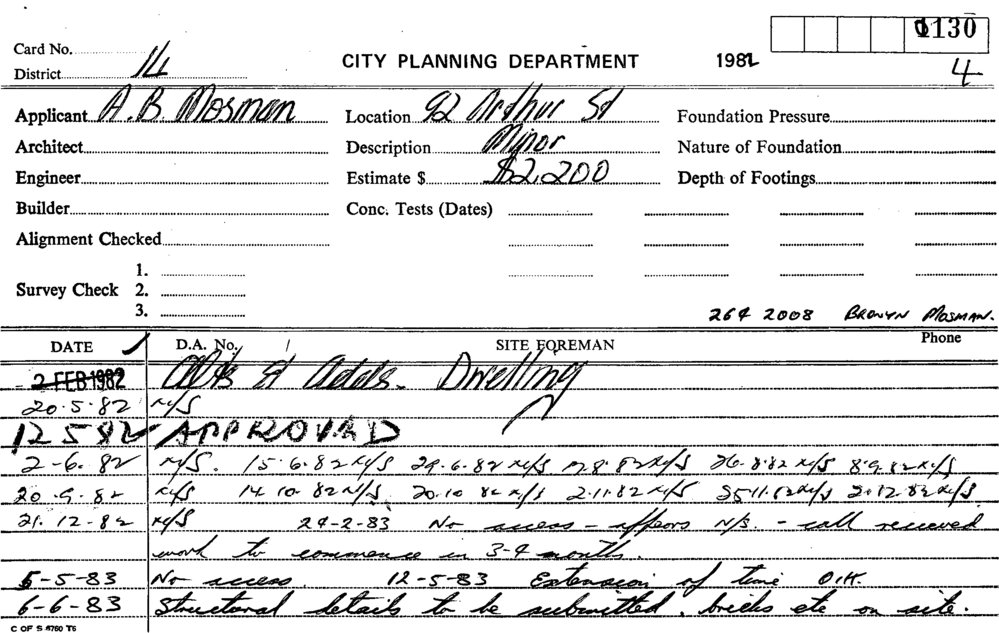 1130
Card No.
District 14 CITY PLANNING DEPARTMENT 1982 4
Applicant A. B. Mosman Location 92 Arthur St Foundation Pressure
Architect Description Minor Nature of Foundation
Engineer Estimate $ $2,200 Depth of Footings
Builder Conc. Tests (Dates)
Alignment Checked
1.
Survey Check 2.
3.
264 2008 BRONYN MOSMAN.
DATE D.A. No. SITE FOREMAN Phone
- 2 FEB 1982 Alts & Adds. Dwelling
20.5.82 N/S
12 5 82 APPROVED
2-6.82 N/S. 15.6.82 N/S 29.6.82 N/S 8.82 N/S 26.8.82 N/S 8.9.82 N/S
20.9.82 N/S 14.10.82 N/S 20.10 82 N/S 2.11.82 N/S 25.11.82 N/S 2.12.82 N/S
21.12-82 N/S 24-2-83 No access - appears N/S. - call received
work to commence in 3-4 months.
5-5-83 No access. 12-5-83 Extension of time O.K.
6-6-83 Structural details to be submitted, bricks etc on site.
C OF S 5760 T6